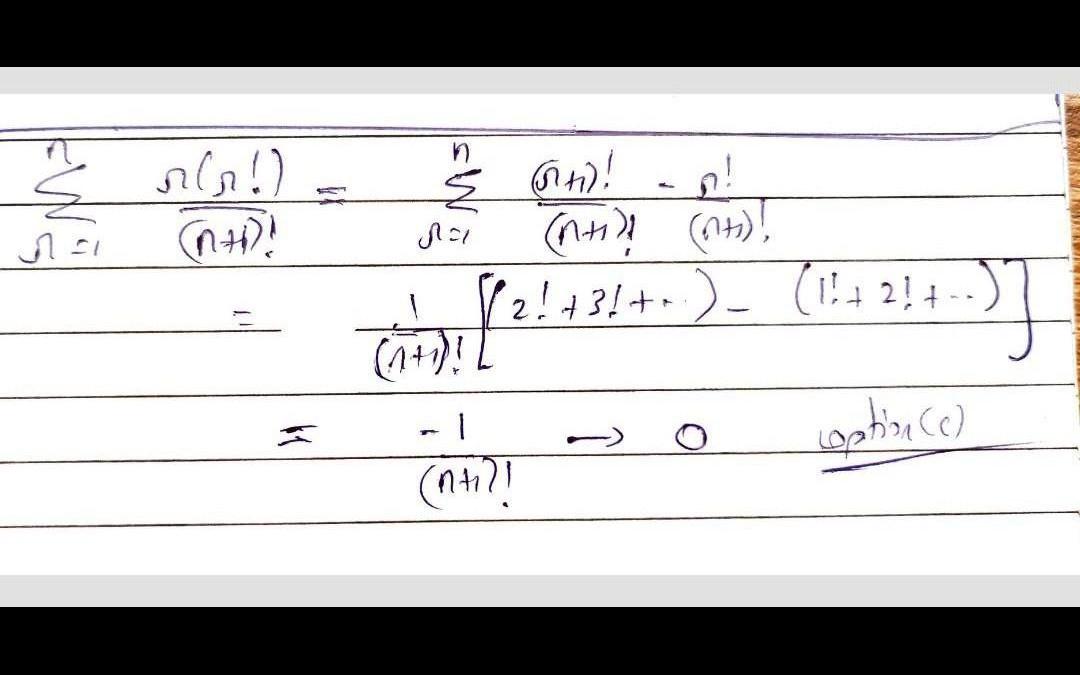 \sum_{r=1}^{n} \frac{r(r!)}{(n+1)!} = \sum_{r=1}^{n} \frac{(r+1)!}{(n+1)!} - \frac{r!}{(n+1)!}
= \frac{1}{(n+1)!} [(2!+3!+..) - (1!+2!+..)]
= \frac{-1}{(n+1)!} → 0 option(c)